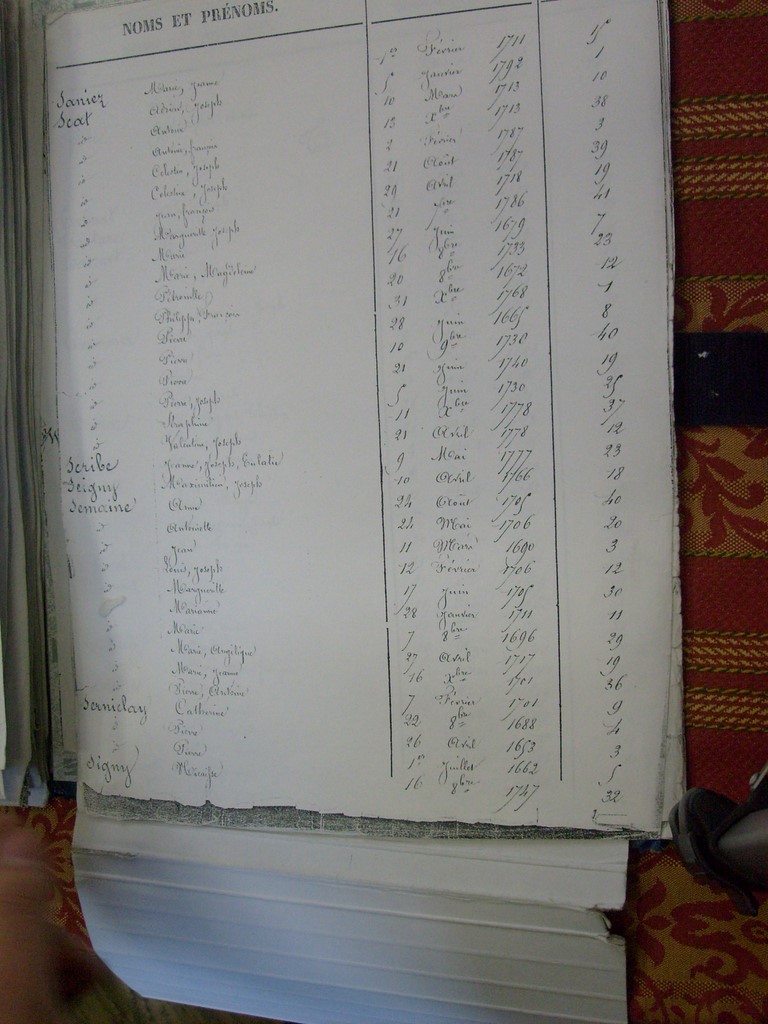 NOMS ET PRÉNOMS.
Saniez Marie, Jeanne 1er Février 1711 15
Scat Adrien, Joseph 5 Janvier 1792 1
id Antoine 10 Mars 1713 10
id Antoine, françois 13 Xbre 1713 38
id Célestin, Joseph 2 Février 1787 3
id Célestine, Joseph 21 Août 1787 39
id Jean, françois 29 Avril 1718 19
id Marguerite Joseph 21 1786 41
id Marie 27 Juin 1679 7
id Marie, Magdeleine 16 8bre 1733 23
id Pétronille 20 8bre 1672 12
id Philippe, François 31 Xbre 1768 1
id Pierre 28 Juin 1665 8
id Pierre 10 9bre 1730 40
id Pierre 21 Juin 1740 19
id Pierre, Joseph 5 Juin 1730 25
id Séraphine 11 Xbre 1778 37
id Valentin, Joseph 21 Avril 1778 12
Scribe Jeanne, Joseph, Eulalie 9 Mai 1777 23
Seigny Maximilien, Joseph 10 Avril 1766 18
Semaine Anne 24 Août 1705 40
id Antoinette 24 Mai 1706 20
id Jean 11 Mars 1690 3
id Louis, Joseph 12 Février 1706 12
id Marguerite 17 Juin 1705 30
id Marianne 28 Janvier 1711 11
id Marie 7 8bre 1696 29
id Marie, Angélique 27 Avril 1717 19
id Marie, Jeanne 16 Xbre 1701 36
id Pierre, Antoine 7 Février 1701 9
Serniclay Catherine 22 8bre 1688 4
id Pierre 26 Avril 1653 3
id Pierre 1er Juillet 1662 5
Signy 16 9bre 1747 32